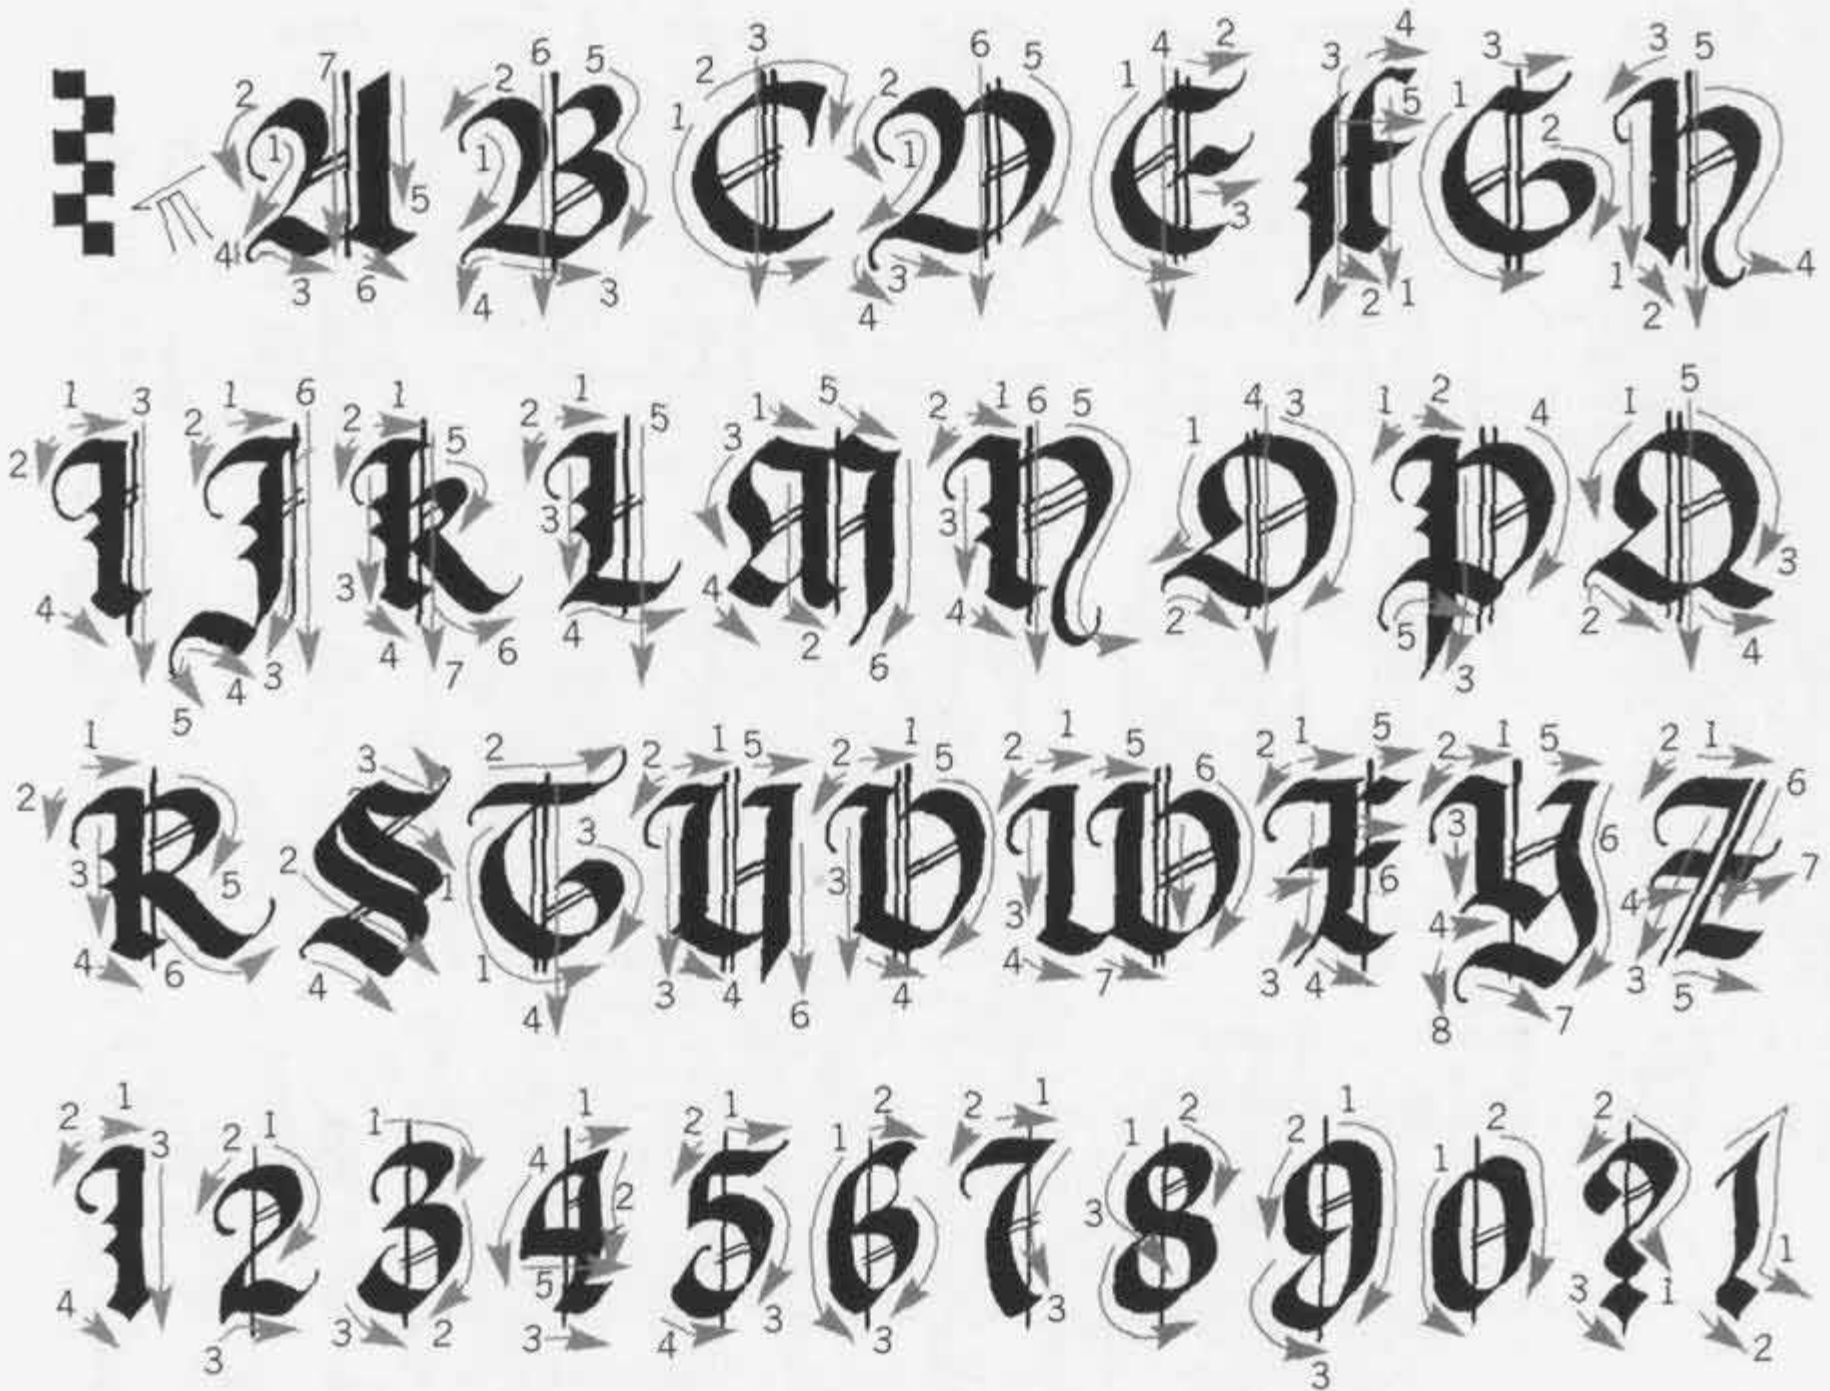 A B C D E F G H
I J K L M N O P Q
R S T U V W X Y Z
1 2 3 4 5 6 7 8 9 0 ? !